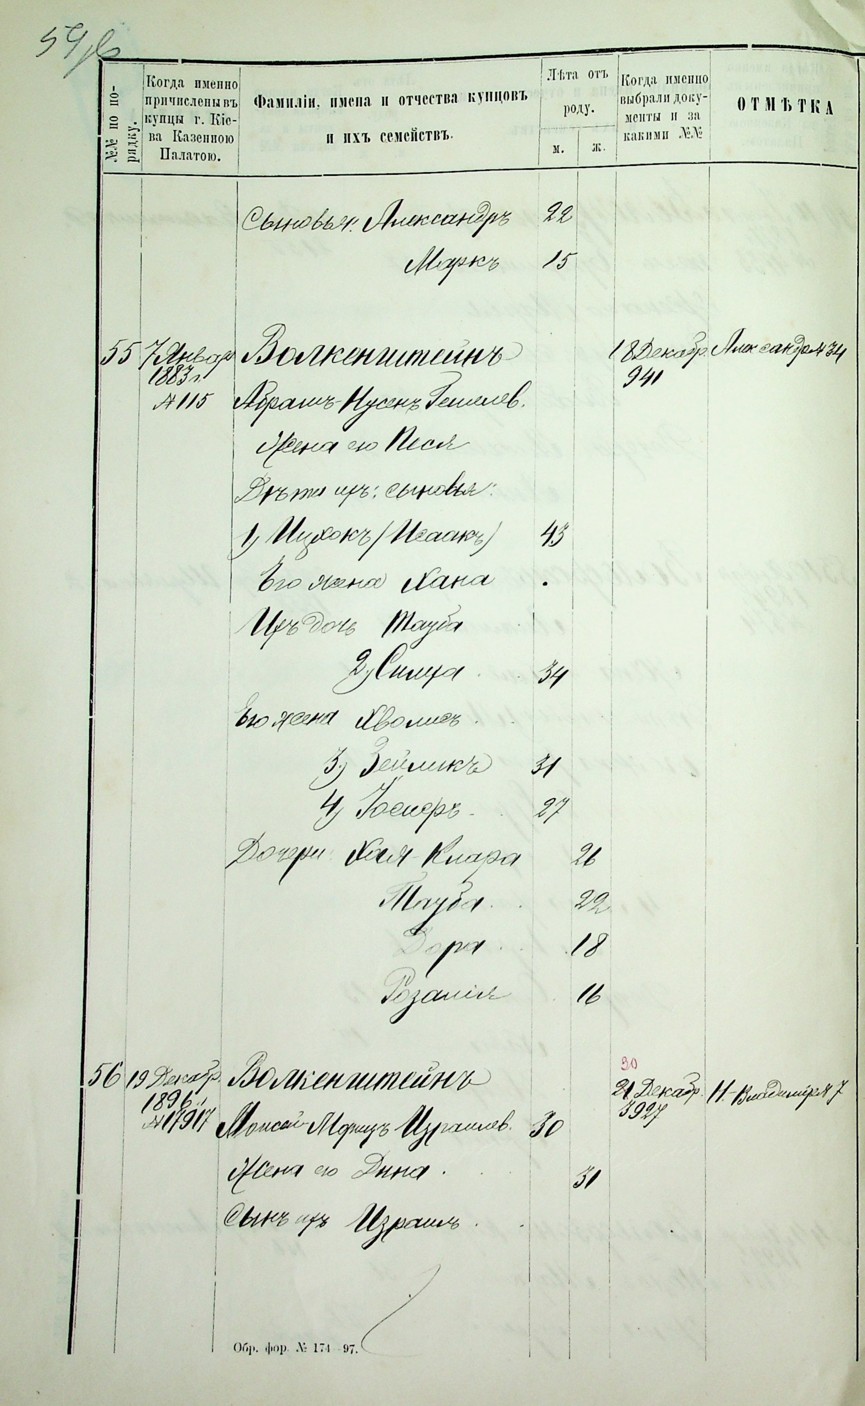 №№ по по-
рядку.
Когда именно
причислены въ
купцы г. Кіе-
ва Казенною
Палатою.
Фамиліи, имена и отчества купцовъ
и ихъ семействъ.
Лѣта отъ
роду.
м.
ж.
Когда именно
выбрали доку-
менты и за
какими №№
ОТМѢТКА
Сыновья: Александръ 22
Маркъ 15
55 7 Январ Волкенштейнъ 18 Декабр. Александр № 34
1883 г. 941
№ 115 Абрамъ-Нусенъ Гешелев.
Жена его Песя
Дѣти ихъ: сыновья:
1) Ицхокъ (Исаакъ) 43
Его жена Хана
Ихъ дочь Тауба
2) Симха 34
Его жена Хволисъ
3) Зейликъ 31
4) Іосифъ 27
Дочери: Хая-Клара 26
Тауба 22
Дора 18
Розалія 16
30
56 19 Декабр. Волкенштейнъ 21 Декабр. Н-Владимір № 7
1896 г. 3927
№ 17917 Моисей-Морицъ Израилев. 30
Жена его Дина 31
Сынъ ихъ Израиль
Обр. фор. № 174—97.